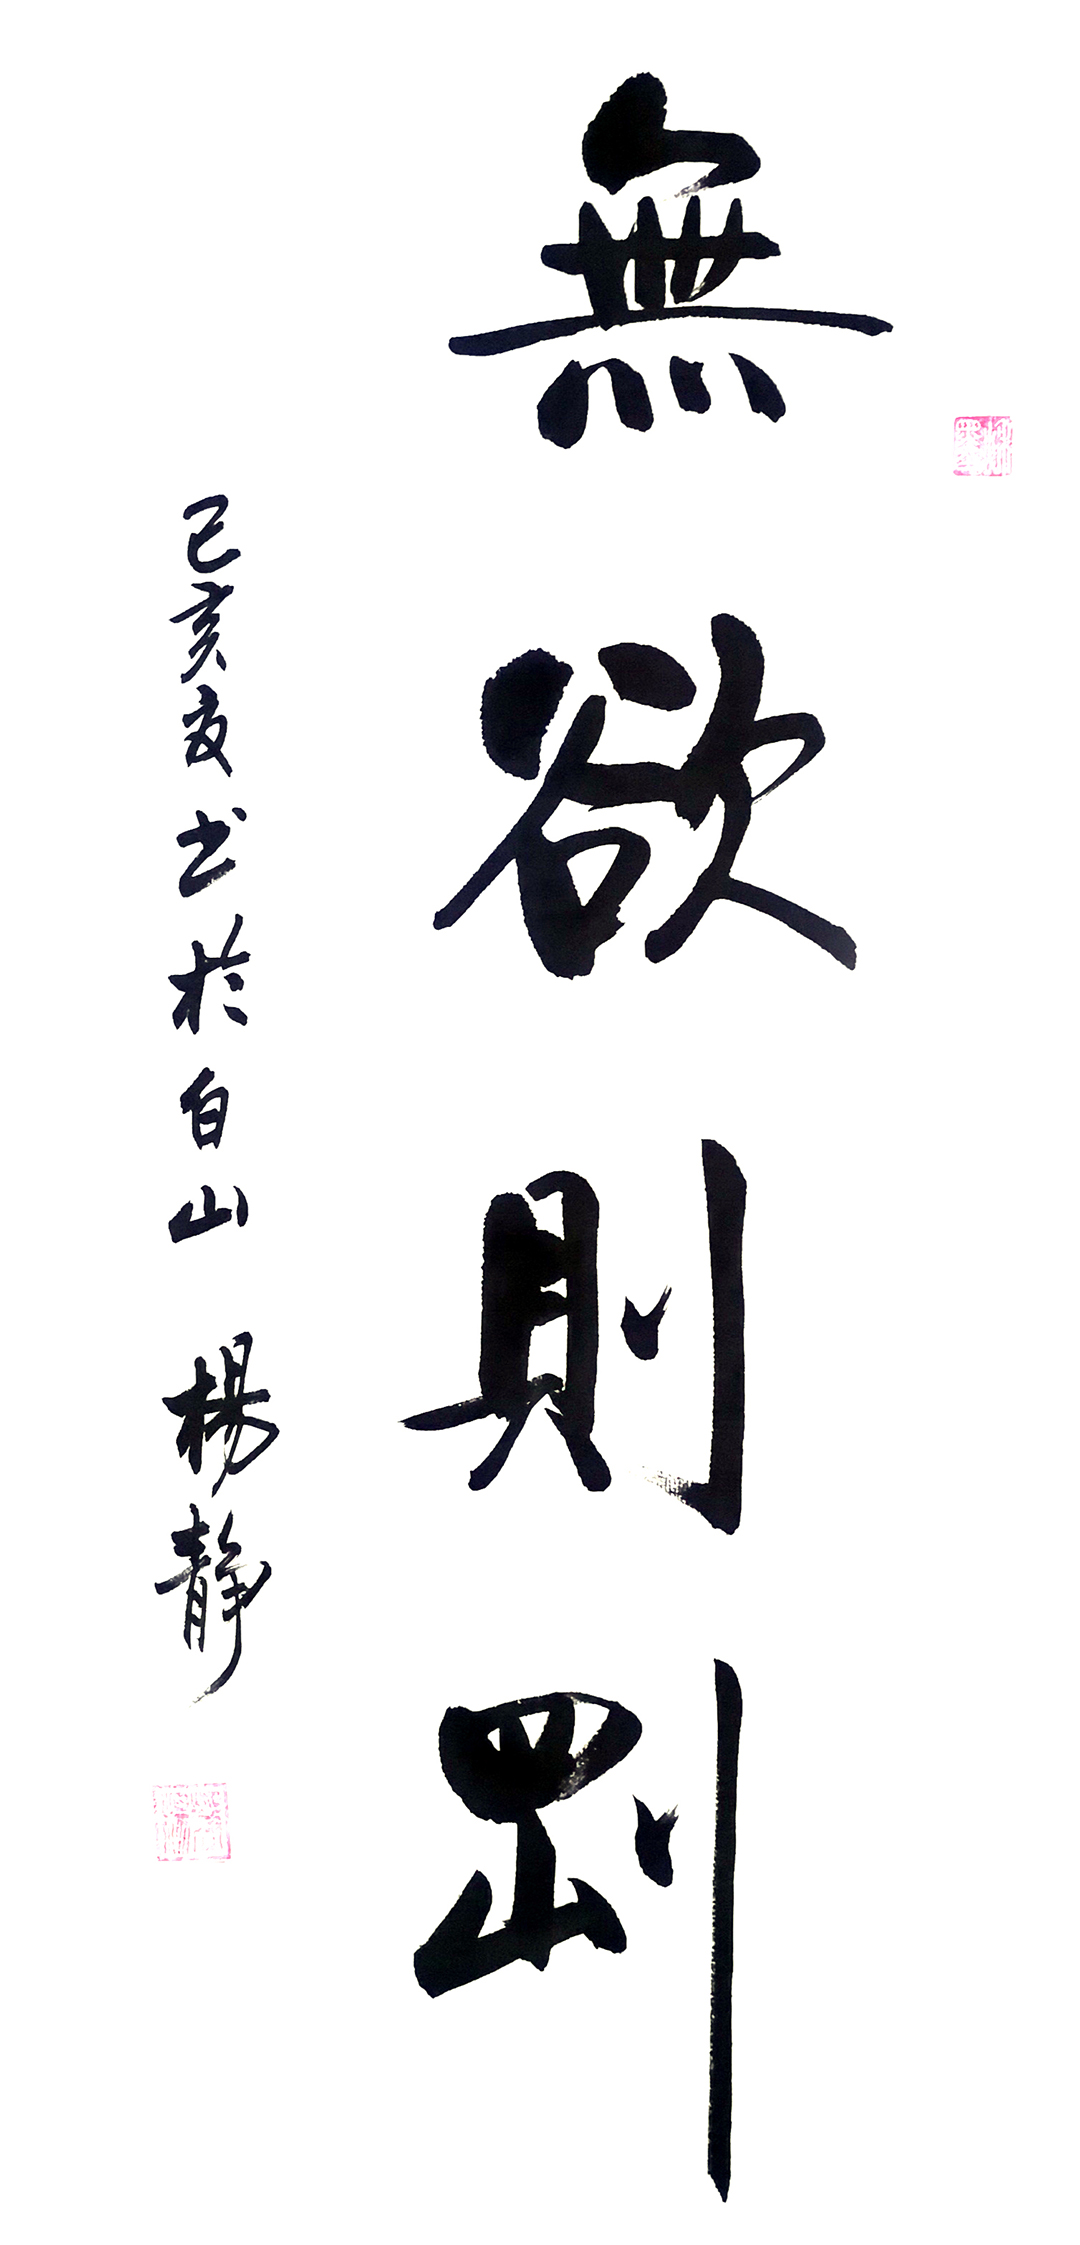 無欲則剛
己亥夏书於白山 楊静